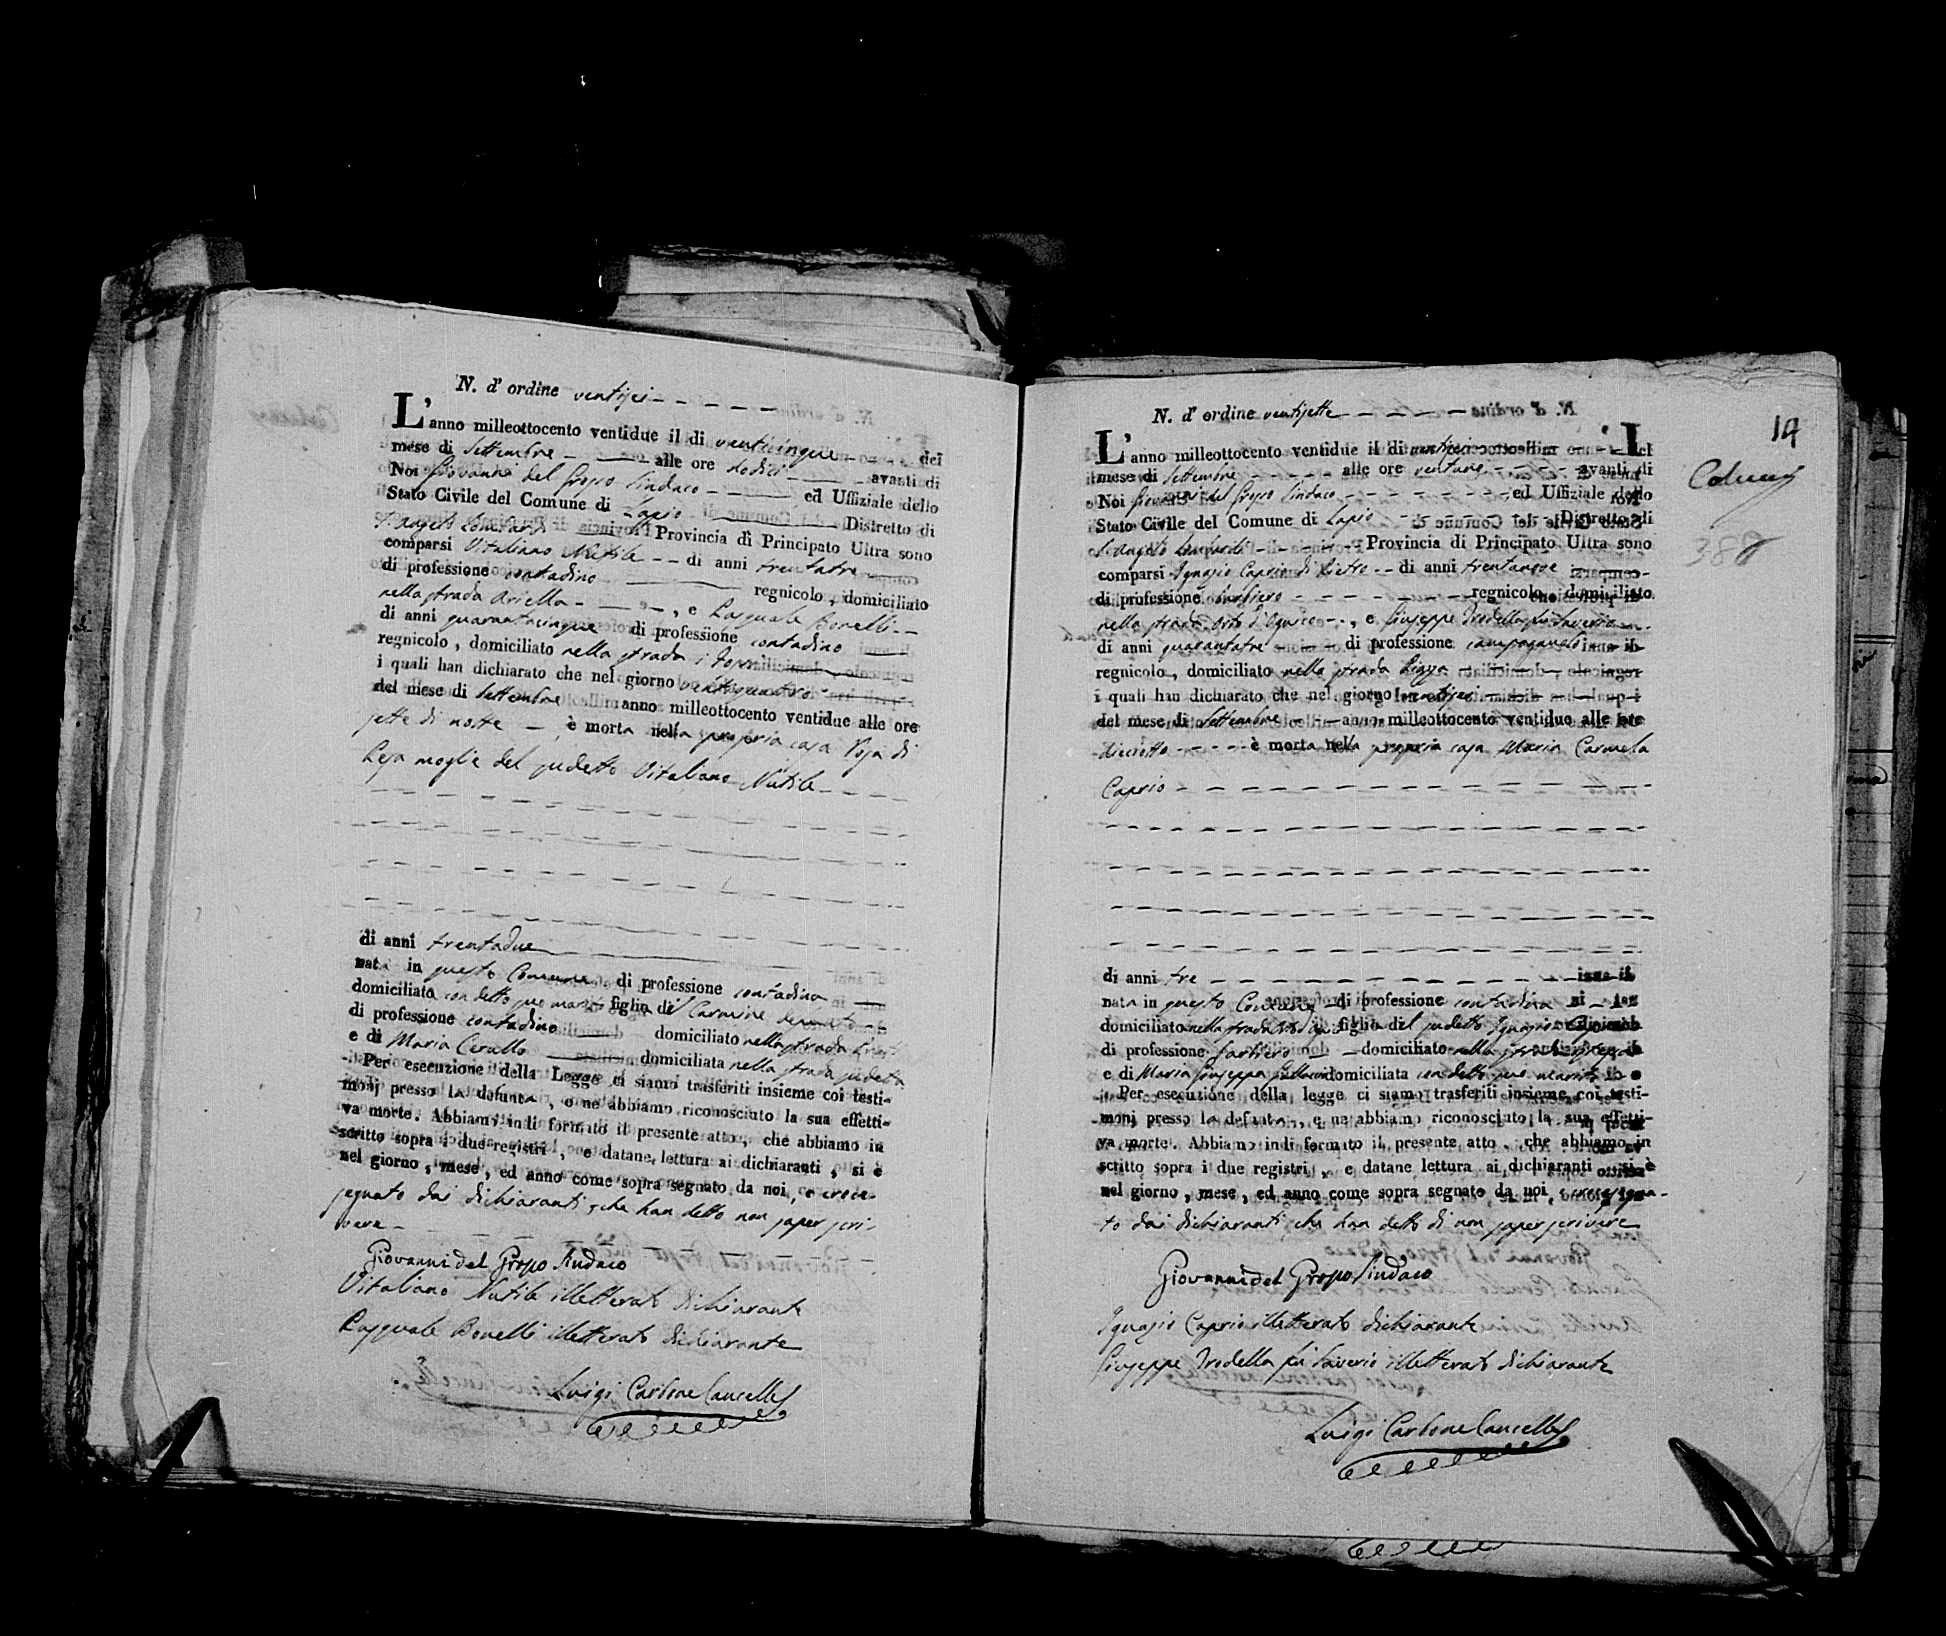 N. d' ordine ventisei
L' anno milleottocento ventidue il di venticinque del
mese di Settembre alle ore dodici avanti di
Noi Giovanni del Grosso Sindaco ed Uffiziale dello
Stato Civile del Comune di Lapio Distretto di
S. Angelo Lombardi Provincia di Principato Ultra sono
comparsi Vitaliano Nutile di anni trentatre
di professione contadino regnicolo, domiciliato
nella strada Ariella, e Pasquale Bonelli
di anni quarantacinque di professione contadino
regnicolo, domiciliato nella strada
i quali han dichiarato che nel giorno ventiquattro
del mese di Settembre anno milleottocento ventidue alle ore
sette di notte è morta nella propria casa Rosa di
Lesa moglie del sudetto Vitaliano Nutile
di anni trentadue
nata in questo Comune di professione contadina
domiciliata con detto suo marito figlia del Carmine
di professione contadino domiciliato nella strada
e di Maria Cerullo domiciliata nella strada sudetta
Per esecuzione della Legge ci siamo trasferiti insieme coi testi-
monj presso la defunta, e ne abbiamo riconosciuto la sua effetti-
va morte. Abbiamo indi formato il presente atto, che abbiamo in
scritto sopra i due registri, e datane lettura ai dichiaranti, si è
nel giorno, mese, ed anno come sopra segnato da noi, e croce-
segnato dai dichiaranti, che han detto non saper scri-
vere
Giovanni del Grosso Sindaco
Vitaliano Nutile illetterato dichiarante
Pasquale Bonelli illetterato dichiarante
Luigi Carbone Cancelle
14
N. d' ordine ventisette
L' anno milleottocento ventidue il di ventisei del
mese di Settembre alle ore ventuno avanti di
Noi Giovanni del Grosso Sindaco ed Uffiziale dello
Stato Civile del Comune di Lapio Distretto di
S. Angelo Lombardi Provincia di Principato Ultra sono
comparsi Ignazio Caprio di Pietro di anni trentanove
di professione regnicolo, domiciliato
nella strada Orto, e Giuseppe Trodella fu Saverio
di anni quarantatre di professione campagnuolo
regnicolo, domiciliato nella strada Piazza
i quali han dichiarato che nel giorno ventisei
del mese di Settembre anno milleottocento ventidue alle ore
dieciotto è morta nella propria casa Maria Carmela
Caprio
di anni tre
nata in questo Comune di professione contadina
domiciliata nella strada figlia del sudetto Ignazio Caprio
di professione domiciliato nella strada
e di Maria Giuseppa domiciliata con detto suo marito
Per esecuzione della legge ci siamo trasferiti insieme coi testi-
monj presso la defunta, e ne abbiamo riconosciuto la sua effetti-
va morte. Abbiamo indi formato il presente atto, che abbiamo in
scritto sopra i due registri, e datane lettura ai dichiaranti si è
nel giorno, mese, ed anno come sopra segnato da noi, e crocesegna-
to dai dichiaranti, che han detto di non saper scrivere
Giovanni del Grosso Sindaco
Ignazio Caprio illetterato dichiarante
Giuseppe Trodella fu Saverio illetterato dichiarante
Luigi Carbone Cancelle